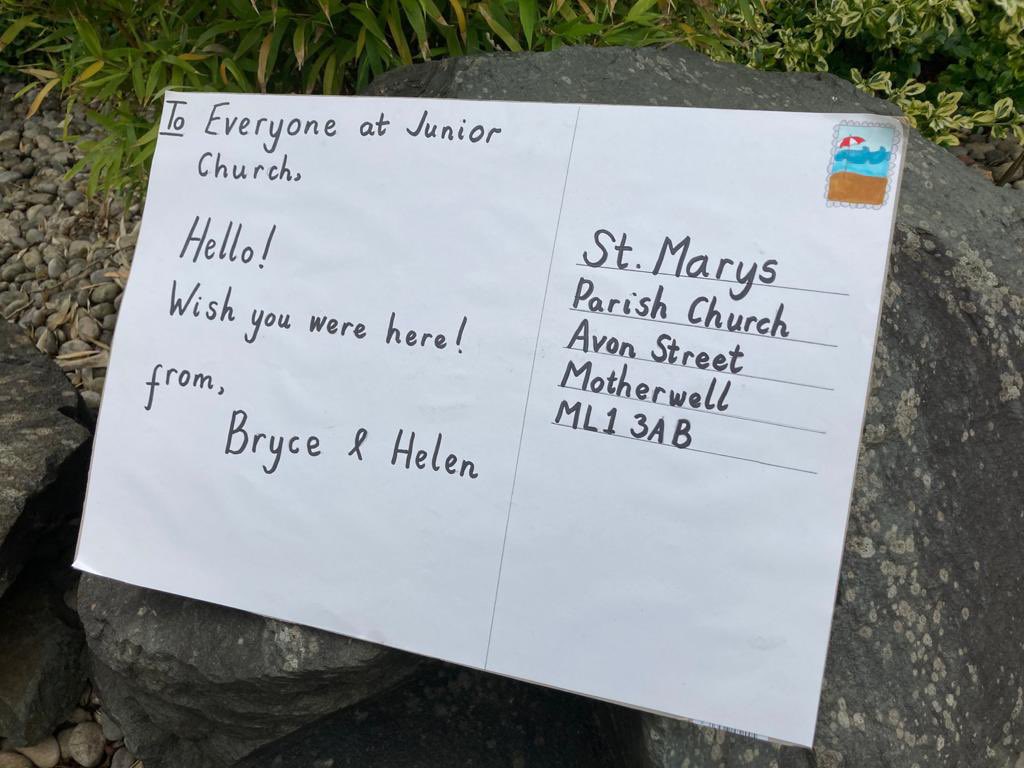 To Everyone at Junior
Church,
Hello!
Wish you were here!
from,
Bryce & Helen
St. Marys
Parish Church
Avon Street
Motherwell
ML1 3AB